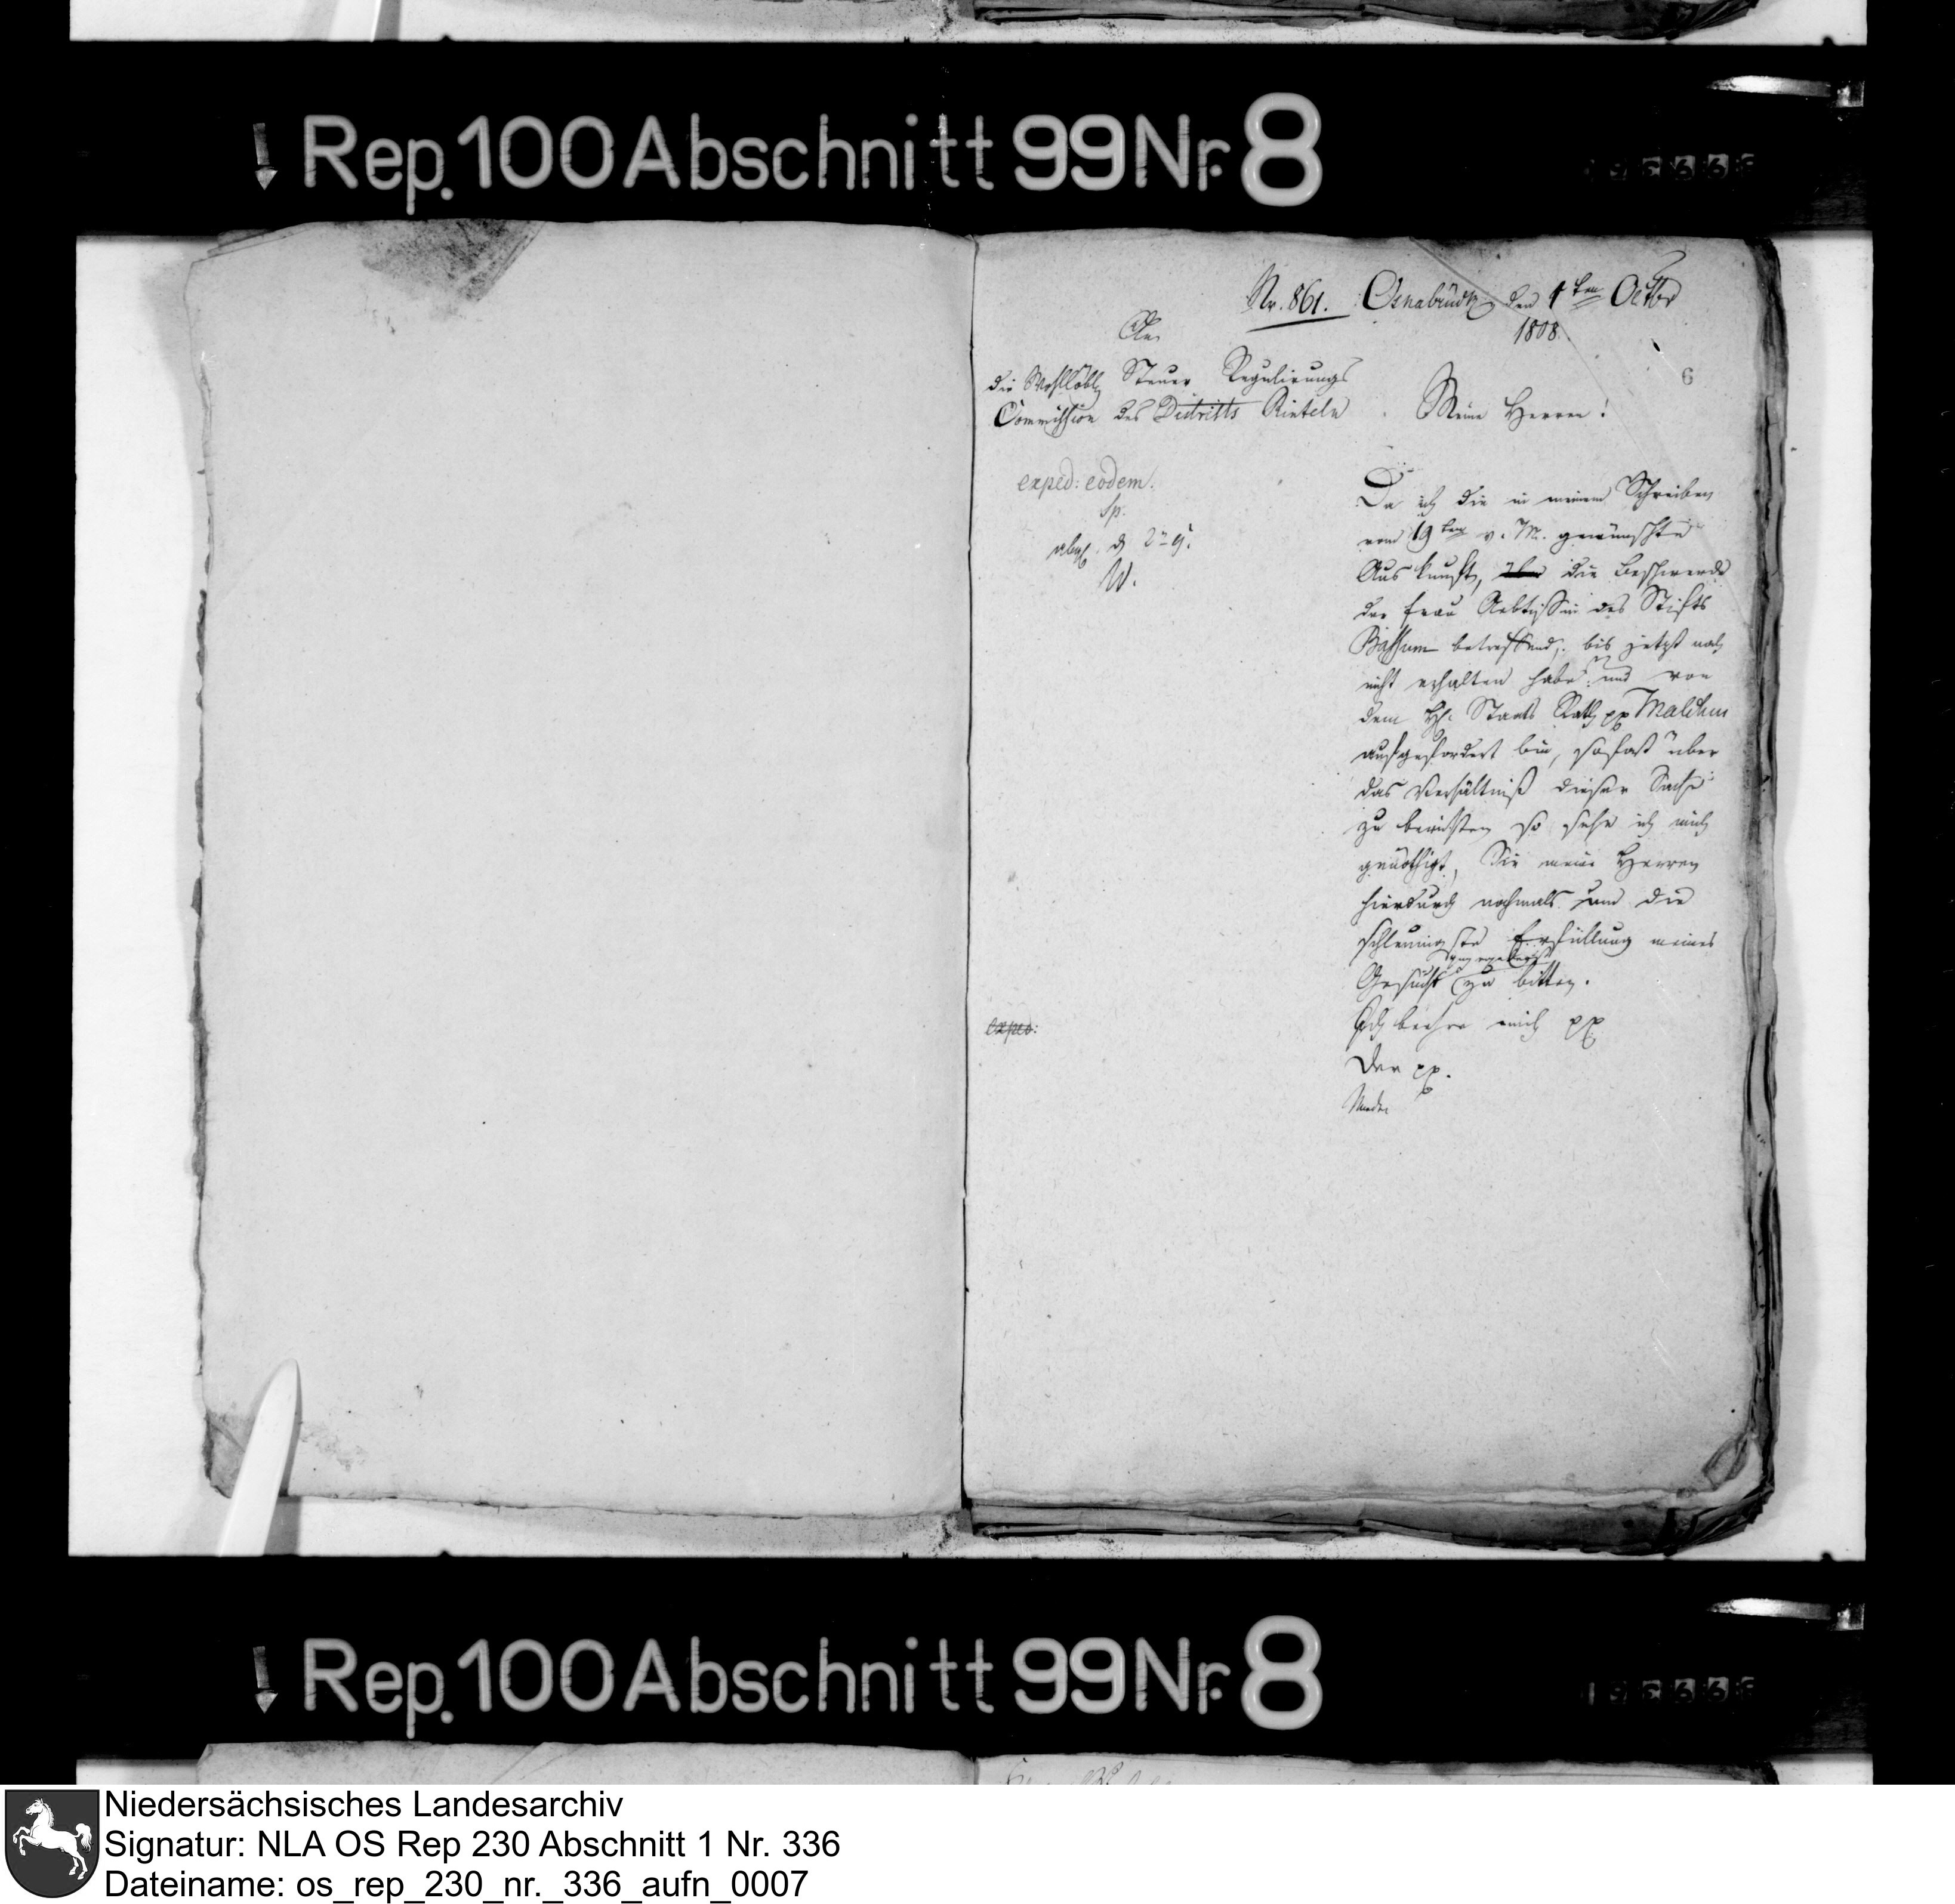 Rep. 100 Abschnitt 99 Nr. 8
Nr. 861. Osnabrück den 1ten Octbr
1808.
An
die Wohllöbl. Steuer Regulirungs
Commission des Districts Rinteln
6
Meine Herren!
exped: eodem.
Sp.
abges. d 2n
W.
Da ich die in meinem Schreiben
vom 19ten v. M. gewünschte
Auskunft, über die Beschwerde
der Frau Aebtissin des Stifts
Bassum betreffend, bis jetzt noch
nicht erhalten habe, und von
dem H. Staats Rath pp Malchus
aufgefordert bin, sofort über
das Verhältniß dieser Sache
zu berichten so sehe ich mich
genöthigt, Sie meine Herren
hierdurch nochmals um die
schleunigste Erfüllung meines
Gesuchs zu bitten.
exped:
Ich beehre mich pp
Der pp.
Rep. 100 Abschnitt 99 Nr. 8
Niedersächsisches Landesarchiv
Signatur: NLA OS Rep 230 Abschnitt 1 Nr. 336
Dateiname: os_rep_230_nr._336_aufn_0007